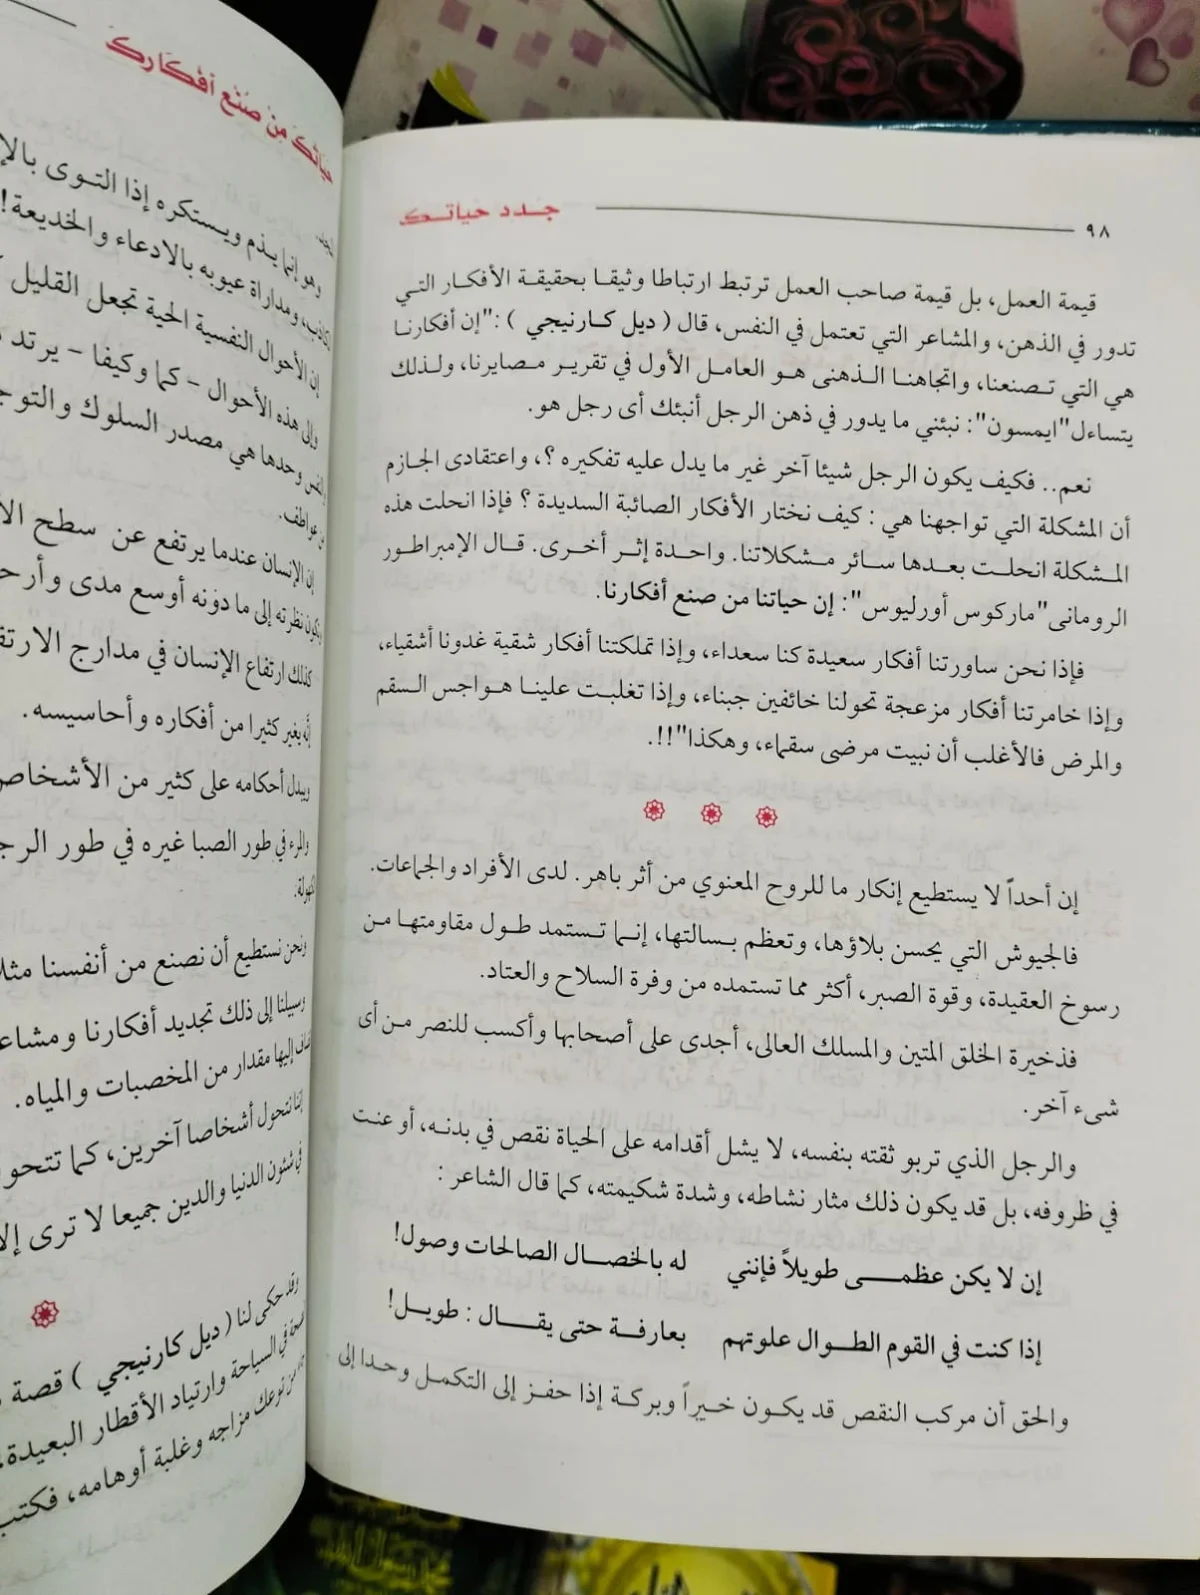 ٩٨ جدد حياتك
قيمة العمل، بل قيمة صاحب العمل ترتبط ارتباطا وثيقا بحقيقة الأفكار التي
تدور في الذهن، والمشاعر التي تعتمل في النفس، قال ( ديل كارنيجي ) :"إن أفكارنا
هي التي تصنعنا، واتجاهنا الذهنى هو العامل الأول في تقرير مصايرنا، ولذلك
يتساءل"ايمسون": نبئني ما يدور في ذهن الرجل أنبئك أى رجل هو.
نعم.. فكيف يكون الرجل شيئا آخر غير ما يدل عليه تفكيره ؟، واعتقادى الجازم
أن المشكلة التي تواجهنا هي : كيف نختار الأفكار الصائبة السديدة ؟ فإذا انحلت هذه
المشكلة انحلت بعدها سائر مشكلاتنا. واحدة إثر أخرى. قال الإمبراطور
الرومانى"ماركوس أورليوس": إن حياتنا من صنع أفكارنا.
فإذا نحن ساورتنا أفكار سعيدة كنا سعداء، وإذا تملكتنا أفكار شقية غدونا أشقياء،
وإذا خامرتنا أفكار مزعجة تحولنا خائفين جبناء، وإذا تغلبت علينا هواجس السقم
والمرض فالأغلب أن نبيت مرضى سقماء، وهكذا"!!.
إن أحداً لا يستطيع إنكار ما للروح المعنوي من أثر باهر. لدى الأفراد والجماعات.
فالجيوش التي يحسن بلاؤها، وتعظم بسالتها، إنما تستمد طول مقاومتها من
رسوخ العقيدة، وقوة الصبر، أكثر مما تستمده من وفرة السلاح والعتاد.
فذخيرة الخلق المتين والمسلك العالى، أجدى على أصحابها وأكسب للنصر من أى
شىء آخر.
والرجل الذي تربو ثقته بنفسه، لا يشل أقدامه على الحياة نقص في بدنه، أو عنت
في ظروفه، بل قد يكون ذلك مثار نشاطه، وشدة شكيمته، كما قال الشاعر :
إن لا يكن عظمى طويلاً فإنني له بالخصال الصالحات وصول!
إذا كنت في القوم الطوال علوتهم بعارفة حتى يقال : طويل!
والحق أن مركب النقص قد يكون خيراً وبركة إذا حفز إلى التكمل وحدا إلى
حياتك من صنع أفكارك
وهو إنما يذم ويستكره إذا التوى
ومداراة عيوبه بالادعاء والخديعة!
إن الأحوال النفسية الحية تجعل القليل
وإلى هذه الأحوال – كما وكيفا – يرتد
وحدها هي مصدر السلوك
عواطف.
إن الإنسان عندما يرتفع عن سطح
نظرته إلى ما دونه أوسع مدى
كذلك ارتفاع الإنسان في مدارج
إنه يغير كثيرا من أفكاره وأحاسيسه.
ويبدل أحكامه على كثير من الأشخاص
والمرء في طور الصبا غيره في طور
ونحن نستطيع أن نصنع من أنفسنا
وسيلنا إلى ذلك تجديد أفكارنا
إليها مقدار من المخصبات والمياه.
إننا نتحول أشخاصا آخرين، كما
في شئون الدنيا والدين جميعا لا ترى
وقد حكى لنا ( ديل كارنيجي ) قصة
في السياحة وارتياد الأقطار البعيدة
مزاجه وغلبة أوهامه،